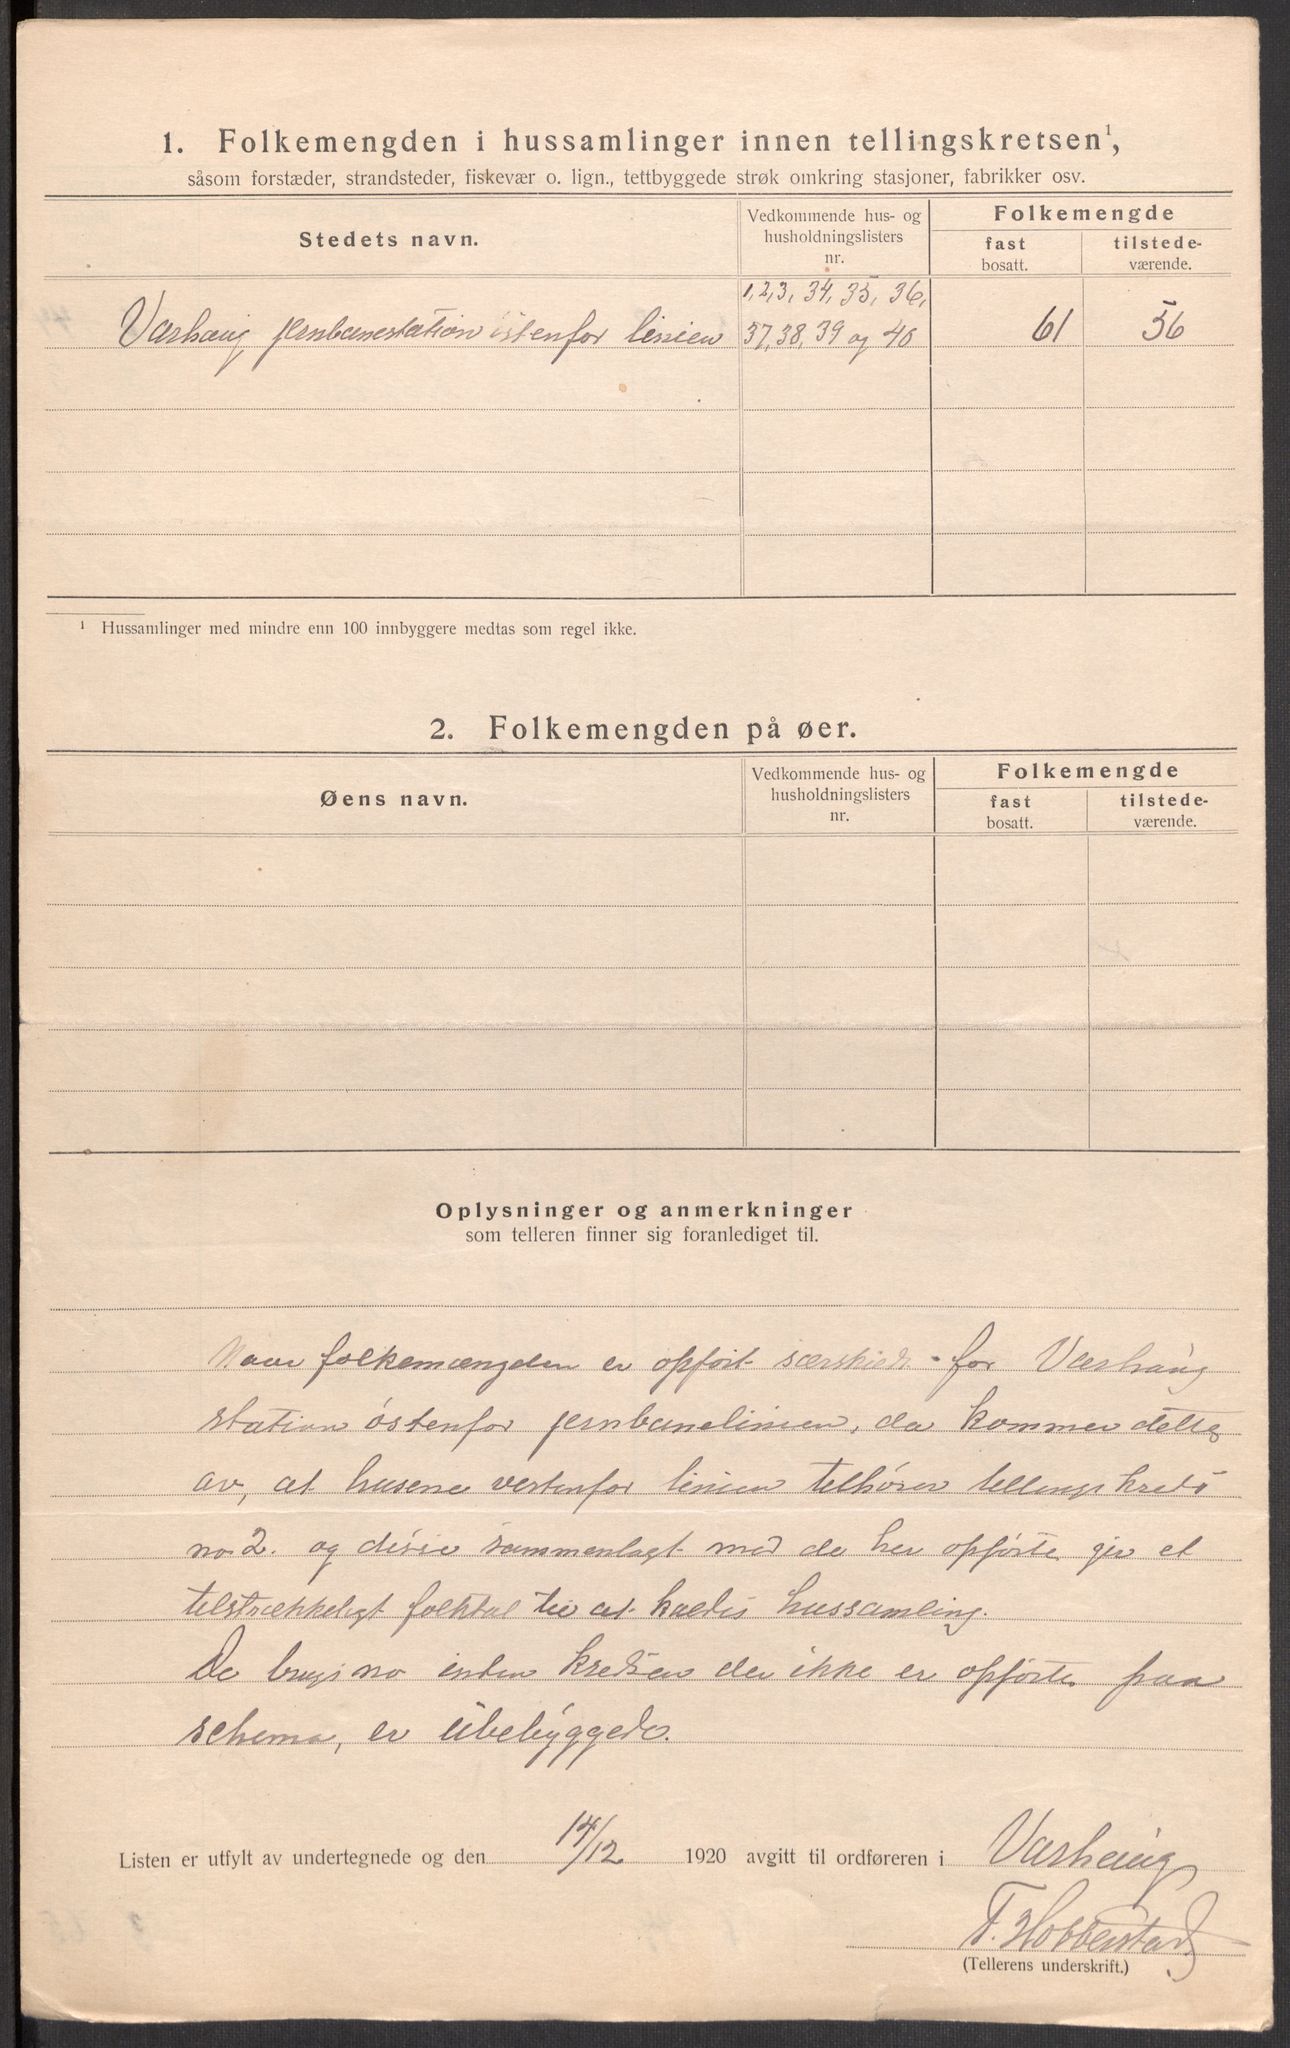 1. Folkemengden i hussamlinger innen tellingskretsen¹,
såsom forstæder, strandsteder, fiskevær o. lign., tettbyggede strøk omkring stasjoner, fabrikker osv.
Stedets navn.
Vedkommende hus- og husholdningslisters nr.
Folkemengde
fast bosatt.
tilstede-værende.
1, 2, 3, 34, 35, 36,
Varhaug jernbanestation østenfor linien 37, 38, 39 og 40 61 56
¹ Hussamlinger med mindre enn 100 innbyggere medtas som regel ikke.
2. Folkemengden på øer.
Øens navn.
Vedkommende hus- og husholdningslisters nr.
Folkemengde
fast bosatt.
tilstede-værende.
Oplysninger og anmerkninger
som telleren finner sig foranlediget til.
Naar folkemængden er opført særskilt for Varhaug
station østenfor jernbanelinien, da kommer dette
av, at husene vestenfor linien tilhører tellingskreds
no 2. og disse sammenlagt med de her opførte gir et
tilstrækkeligt folketal til at kaldes hussamling.
De brugsno inden kredsen der ikke er opførte paa
schema, er ubebyggede.
Listen er utfylt av undertegnede og den 14/12 1920 avgitt til ordføreren i Varhaug
T. Hobberstad
(Tellerens underskrift.)